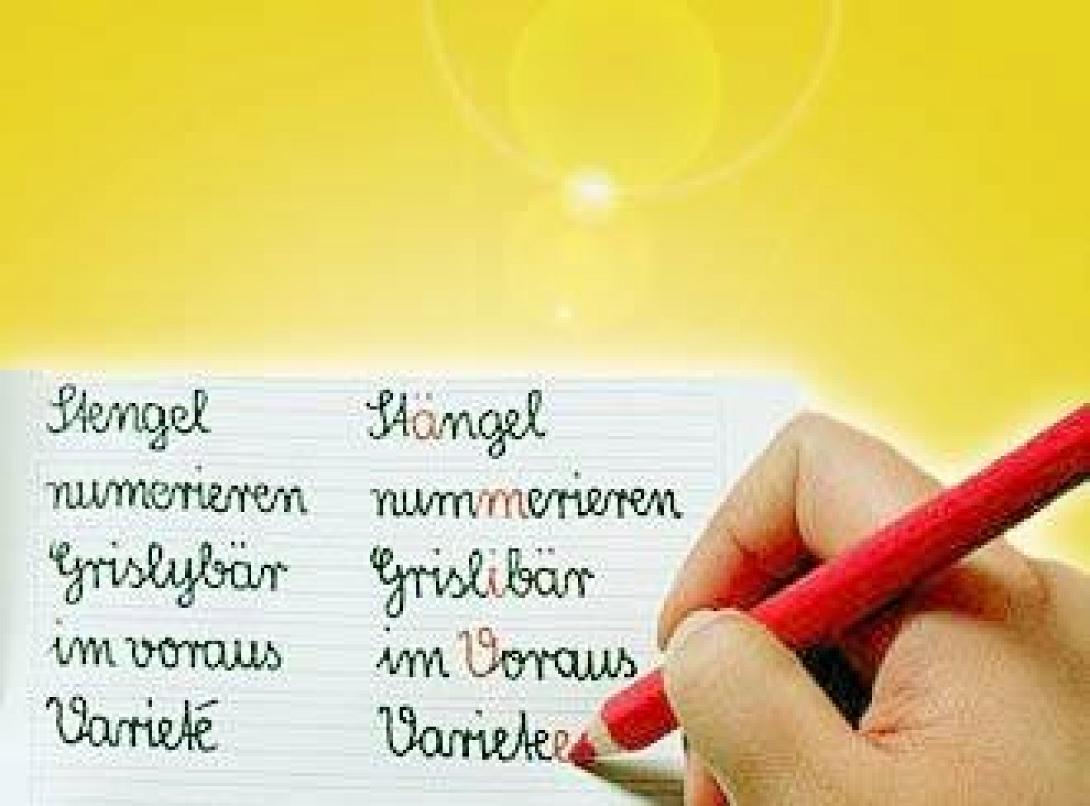 Stengel Stängel
numerieren nummerieren
Grislybär Grislibär
im voraus im Voraus
Varieté Varietee